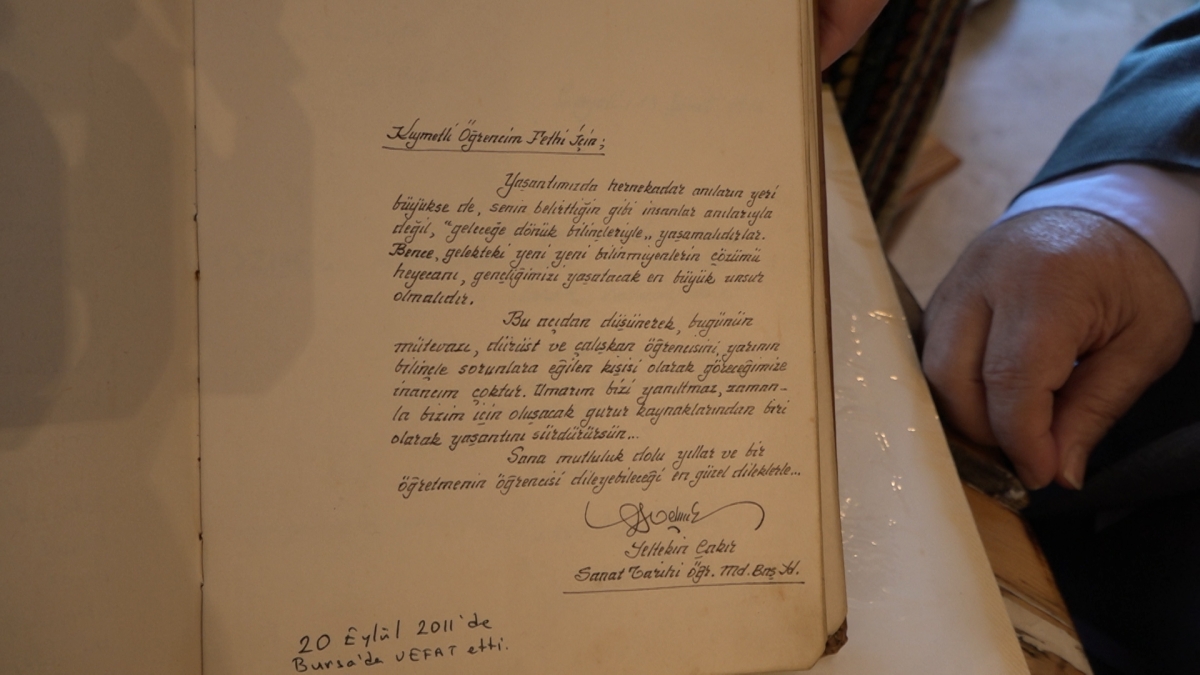 Kıymetli Öğrencim Fethi İçin;
Yaşantımızda hernekadar anıların yeri
büyükse de, senin belirttiğin gibi insanlar anılarıyla
değil, "geleceğe dönük bilinçleriyle„ yaşamalıdırlar.
Bence, gelekteki yeni yeni bilinmiyenlerin çözümü
heyecanı, gençliğimizi yaşatacak en büyük unsur
olmalıdır.
Bu açıdan düşünerek, bugünün
mütevazı, dürüst ve çalışkan öğrencisini, yarının
bilinçle sorunlara eğilen kişisi olarak göreceğimize
inancım çoktur. Umarım bizi yanıltmaz, zaman-
la bizim için oluşacak gurur kaynaklarından biri
olarak yaşantını sürdürürsün...
Sana mutluluk dolu yıllar ve bir
öğretmenin öğrencisi dileyebileceği en güzel dileklerle...
Çakır
Sanat Tarihi Öğr. Md. Baş Yd.
20 Eylül 2011'de
Bursa'da VEFAT etti.